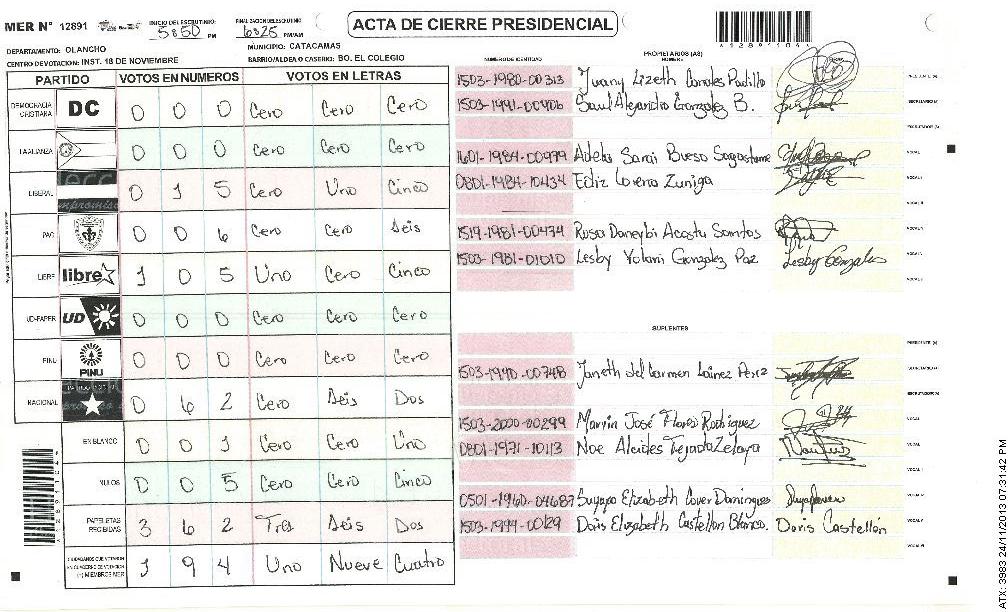 MER N° 12891
INICIO DEL ESCRUTINIO
5:50 PM
FINALIZACION DEL ESCRUTINIO
6:25 PM/AM
ACTA DE CIERRE PRESIDENCIAL
DEPARTAMENTO: OLANCHO
MUNICIPIO: CATACAMAS
CENTRO DE VOTACION: INST. 18 DE NOVIEMBRE
BARRIO/ALDEA O CASERIO: BO. EL COLEGIO
PARTIDO VOTOS EN NUMEROS VOTOS EN LETRAS
DEMOCRACIA CRISTIANA DC 0 0 0 Cero Cero Cero
LA ALIANZA 0 0 0 Cero Cero Cero
LIBERAL 0 1 5 Cero Uno Cinco
PAC 0 0 6 Cero Cero Seis
LIBRE libre 1 0 5 Uno Cero Cinco
UD-FAPER UD 0 0 0 Cero Cero Cero
PINU PINU 0 0 0 Cero Cero Cero
NACIONAL 0 6 2 Cero Seis Dos
EN BLANCO 0 0 1 Cero Cero Uno
NULOS 0 0 5 Cero Cero Cinco
PAPELETAS RECIBIDAS 3 6 2 Tres Seis Dos
CIUDADANOS QUE VOTARON EN CUADERNO DE VOTACION (+) MIEMBROS MER 1 9 4 Uno Nueve Cuatro
PROPIETARIOS (AS)
NUMERO DE IDENTIDAD NOMBRE
1503-1980-00313 Canales Padillo
1503-1991-00406 Saul Alejandro Gonzalez B.
1601-1984-00979 Sarai Bueso
0801-1984-10434 Lorena Zuniga
1519-1981-00474 Rosa Acosta Santos
1503-1981-01010 Lesby Yolani Gonzalez Paz Lesby Gonzales
SUPLENTES
1503-1990-00748 Janeth del Carmen Lainez Perez
1503-2000-00299 José Flores Rodriguez
0801-1971-10113 Noe Alcides Tejada Zelaya
0501-1960-04687 Suyapa Elizabeth
1503-1994-00129 Doris Elizabeth Castellon Blanco. Doris Castellón
ATX: 3983 24/11/2013 07:31:42 PM